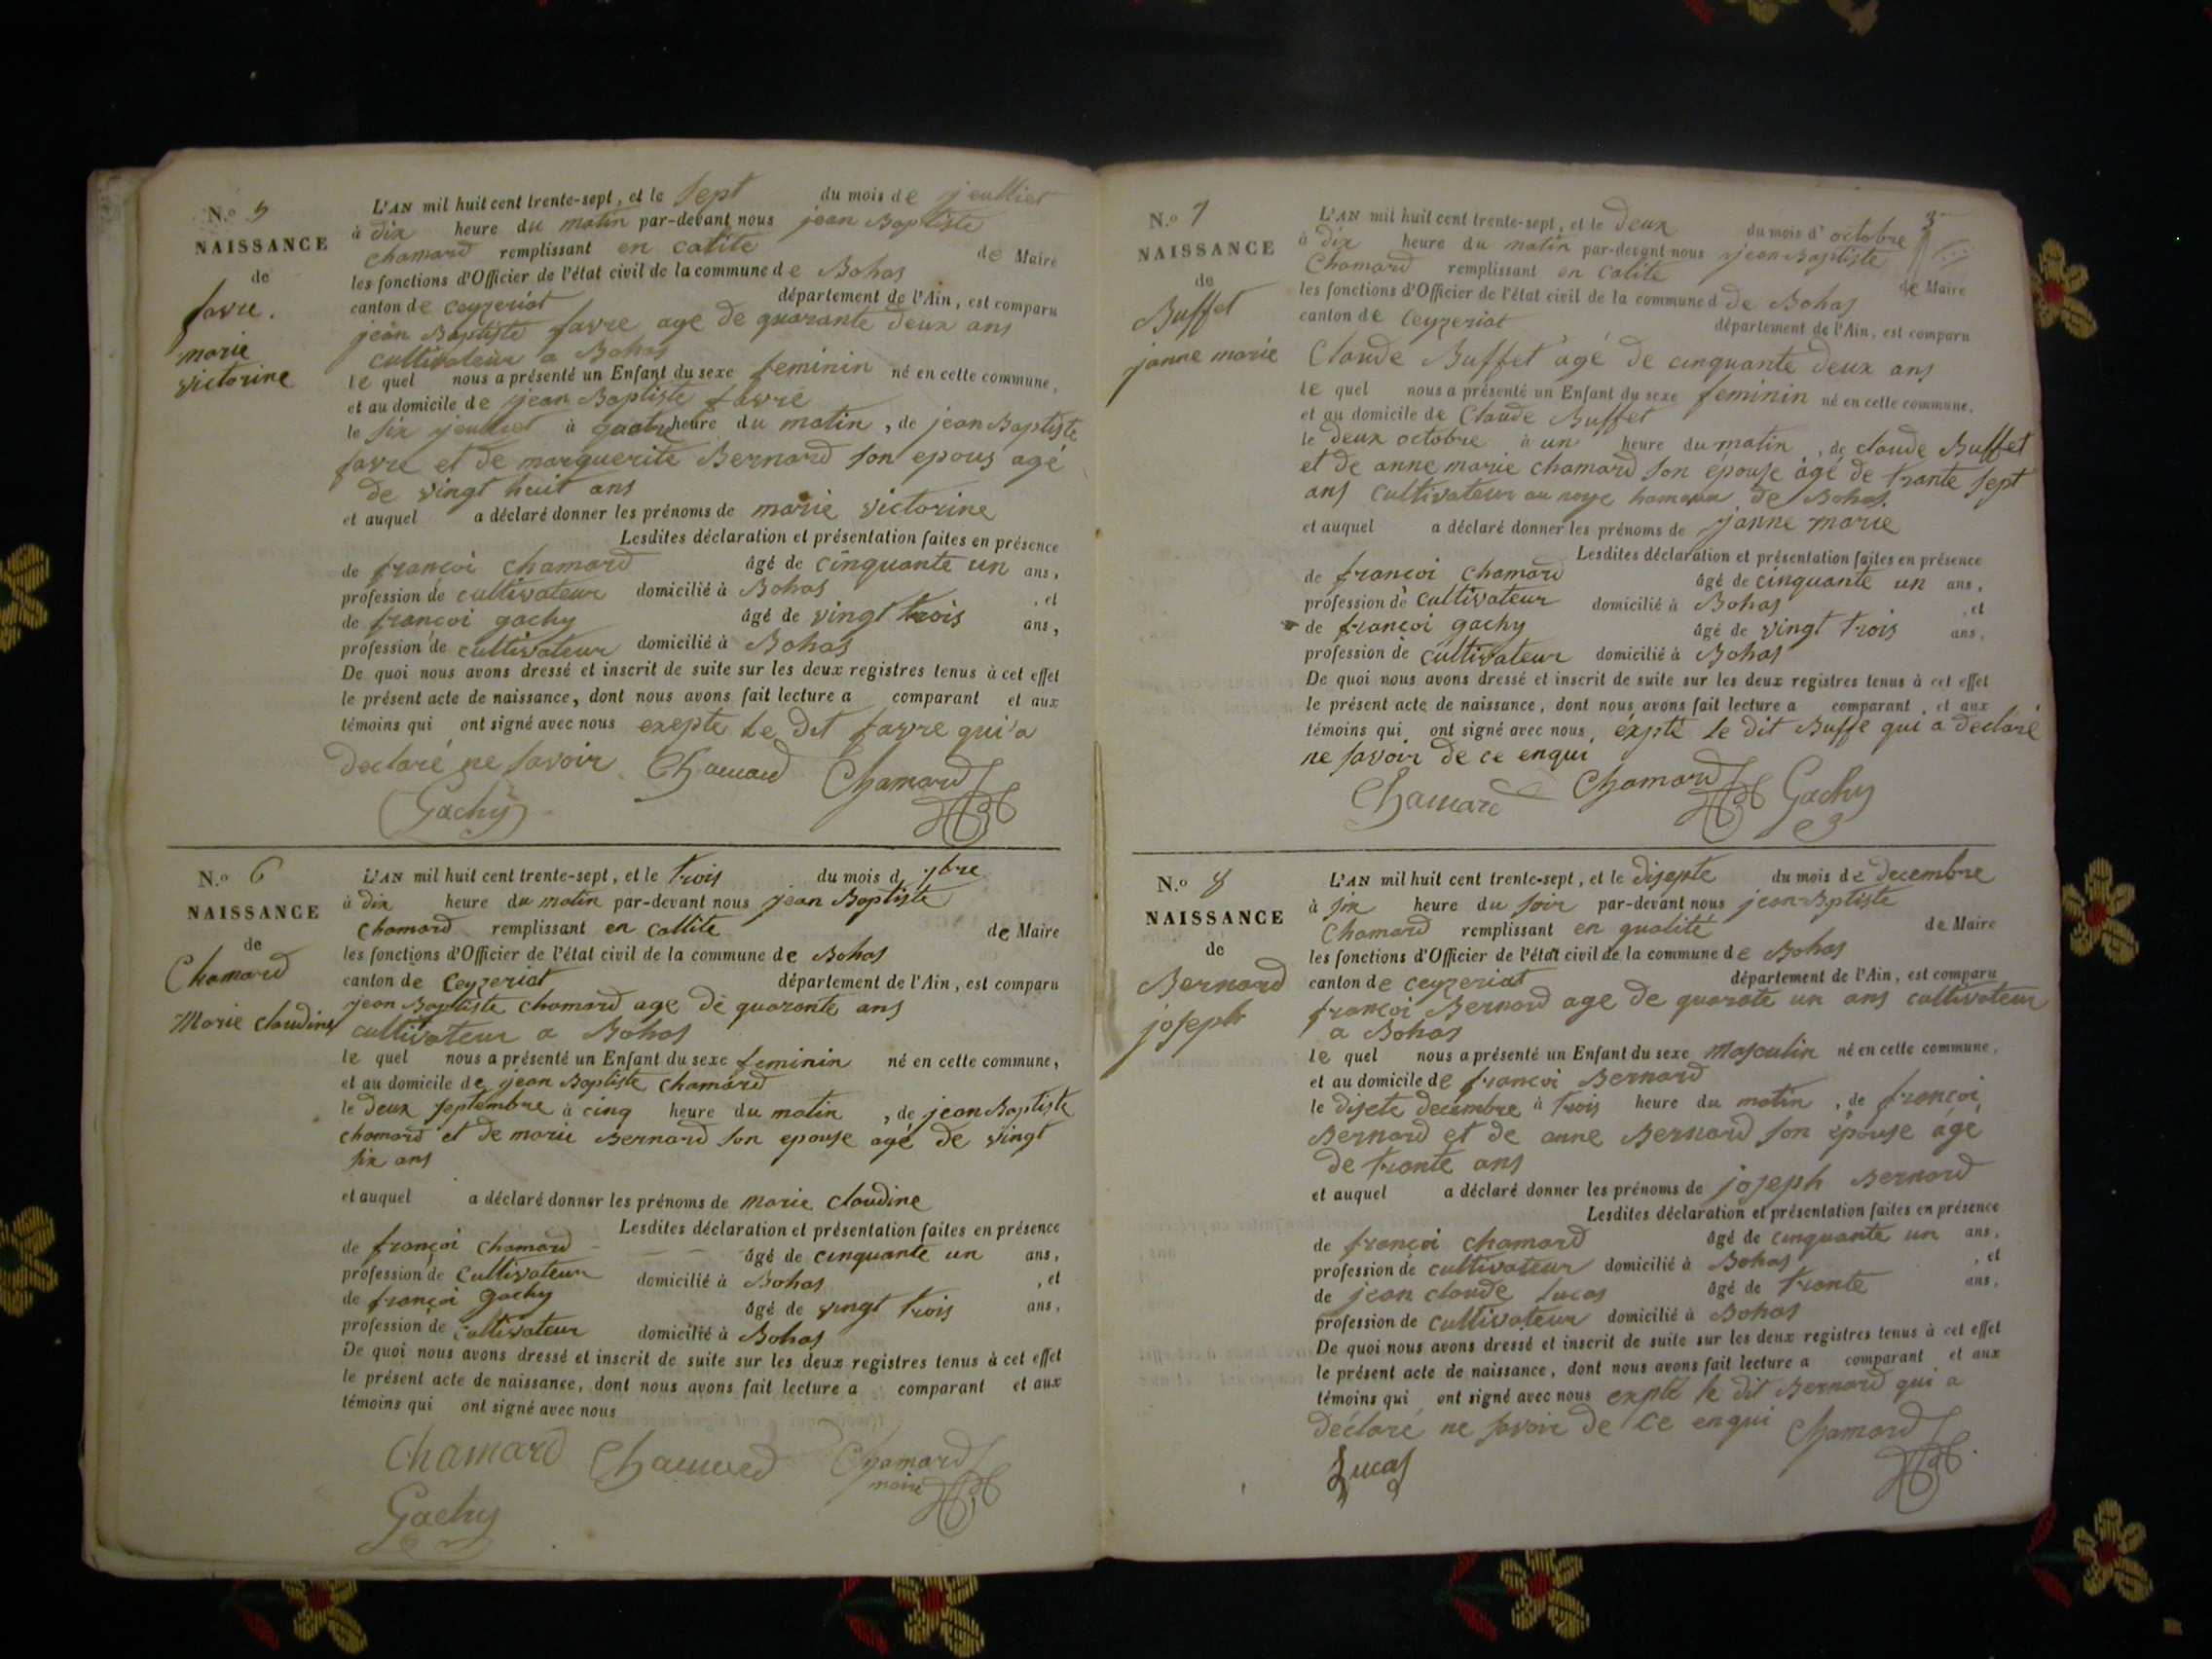 N.o 5
NAISSANCE
de
favre.
marie
victorine
L'AN mil huit cent trente-sept, et le sept du mois de jeulliet
à dix heure du matin par-devant nous jean Baptiste
chamard remplissant en catite de Maire
les fonctions d'Officier de l'état civil de la commune de Bohas
canton de ceyzeriat département de l'Ain, est comparu
jean Baptiste favre age de quarante deux ans
cultivateur a Bohas
le quel nous a présenté un Enfant du sexe feminin né en cette commune,
et au domicile de jean Baptiste favre
le six jeulliet à quatre heure du matin, de jean Baptiste
favre et de marguerite Bernard son epous agé
de vingt huit ans
et auquel a déclaré donner les prénoms de marie victorine
Lesdites déclaration et présentation faites en présence
de francoi chamard âgé de cinquante un ans,
profession de cultivateur domicilié à Bohas, et
de francoi gachy âgé de vingt trois ans,
profession de cultivateur domicilié à Bohas
De quoi nous avons dressé et inscrit de suite sur les deux registres tenus à cet effet
le présent acte de naissance, dont nous avons fait lecture a comparant et aux
témoins qui ont signé avec nous exepte le dit favre qui a
declaré ne savoir Chamard Chamard
Gachy
N.o 6
NAISSANCE
de
Chamard
Marie claudine
L'AN mil huit cent trente-sept, et le trois du mois d 7bre
à dix heure du matin par-devant nous jean Baptiste
chamard remplissant en callite de Maire
les fonctions d'Officier de l'état civil de la commune de Bohas
canton de Ceyzeriat département de l'Ain, est comparu
jean Baptiste chamard age de quaronte ans
cultivateur a Bohas
le quel nous a présenté un Enfant du sexe feminin né en cette commune,
et au domicile de jean Baptiste chamard
le deux septembre à cinq heure du matin, de jean Baptiste
chamard et de marie Bernard son epouse agé de vingt
six ans
et auquel a déclaré donner les prénoms de marie claudine
Lesdites déclaration et présentation faites en présence
de françoi chamard âgé de cinquante un ans,
profession de cultivateur domicilié à Bohas, et
de françoi gachy âgé de vingt trois ans,
profession de cultivateur domicilié à Bohas
De quoi nous avons dressé et inscrit de suite sur les deux registres tenus à cet effet
le présent acte de naissance, dont nous avons fait lecture a comparant et aux
témoins qui ont signé avec nous
Chamard Chamard Chamard
maire
Gachy
3
N.o 7
NAISSANCE
de
Buffet
janne marie
L'AN mil huit cent trente-sept, et le deux du mois d' octobre
à dix heure du matin par-devant nous jean Baptiste
Chamard remplissant en calite de Maire
les fonctions d'Officier de l'état civil de la commune d de Bohas
canton de ceyzeriat département de l'Ain, est comparu
Claude Buffet agé de cinquante deux ans
le quel nous a présenté un Enfant du sexe feminin né en cette commune,
et au domicile de Claude Buffet
le deux octobre à un heure du matin, de claude Buffet
et de anne marie chamard son épouse agé de trante sept
ans cultivateur au noye hameau de Bohas.
et auquel a déclaré donner les prénoms de janne marie
Lesdites déclaration et présentation faites en présence
de francoi chamard âgé de cinquante un ans,
profession de cultivateur domicilié à Bohas, et
de francoi gachy âgé de vingt trois ans,
profession de cultivateur domicilié à Bohas
De quoi nous avons dressé et inscrit de suite sur les deux registres tenus à cet effet
le présent acte de naissance, dont nous avons fait lecture a comparant et aux
témoins qui ont signé avec nous éxpté le dit Buffe qui a declaré
ne savoir de ce enqui
Chamard Chamard Gachy
N.o 8
NAISSANCE
de
Bernard
joseph
L'AN mil huit cent trente-sept, et le disepte du mois de decembre
à six heure du soir par-devant nous jean Bptiste
Chamard remplissant en qualité de Maire
les fonctions d'Officier de l'état civil de la commune de Bohas
canton de ceyzeriat département de l'Ain, est comparu
françoi Bernard age de quarate un ans cultivateur
a Bohas
le quel nous a présenté un Enfant du sexe Masculin né en cette commune,
et au domicile de francoi Bernard
le disete decembre à trois heure du matin, de francoi
Bernard et de anne Bernard son épouse agé
de tronte ans
et auquel a déclaré donner les prénoms de joseph Bernard
Lesdites déclaration et présentation faites en présence
de françoi chamard âgé de cinquante un ans,
profession de cultivateur domicilié à Bohas, et
de jean claude lucas âgé de tronte ans,
profession de cultivateur domicilié à Bohas
De quoi nous avons dressé et inscrit de suite sur les deux registres tenus à cet effet
le présent acte de naissance, dont nous avons fait lecture a comparant et aux
témoins qui ont signé avec nous expté le dit Bernard qui a
déclaré ne savoir de ce enqui Chamard
Lucas